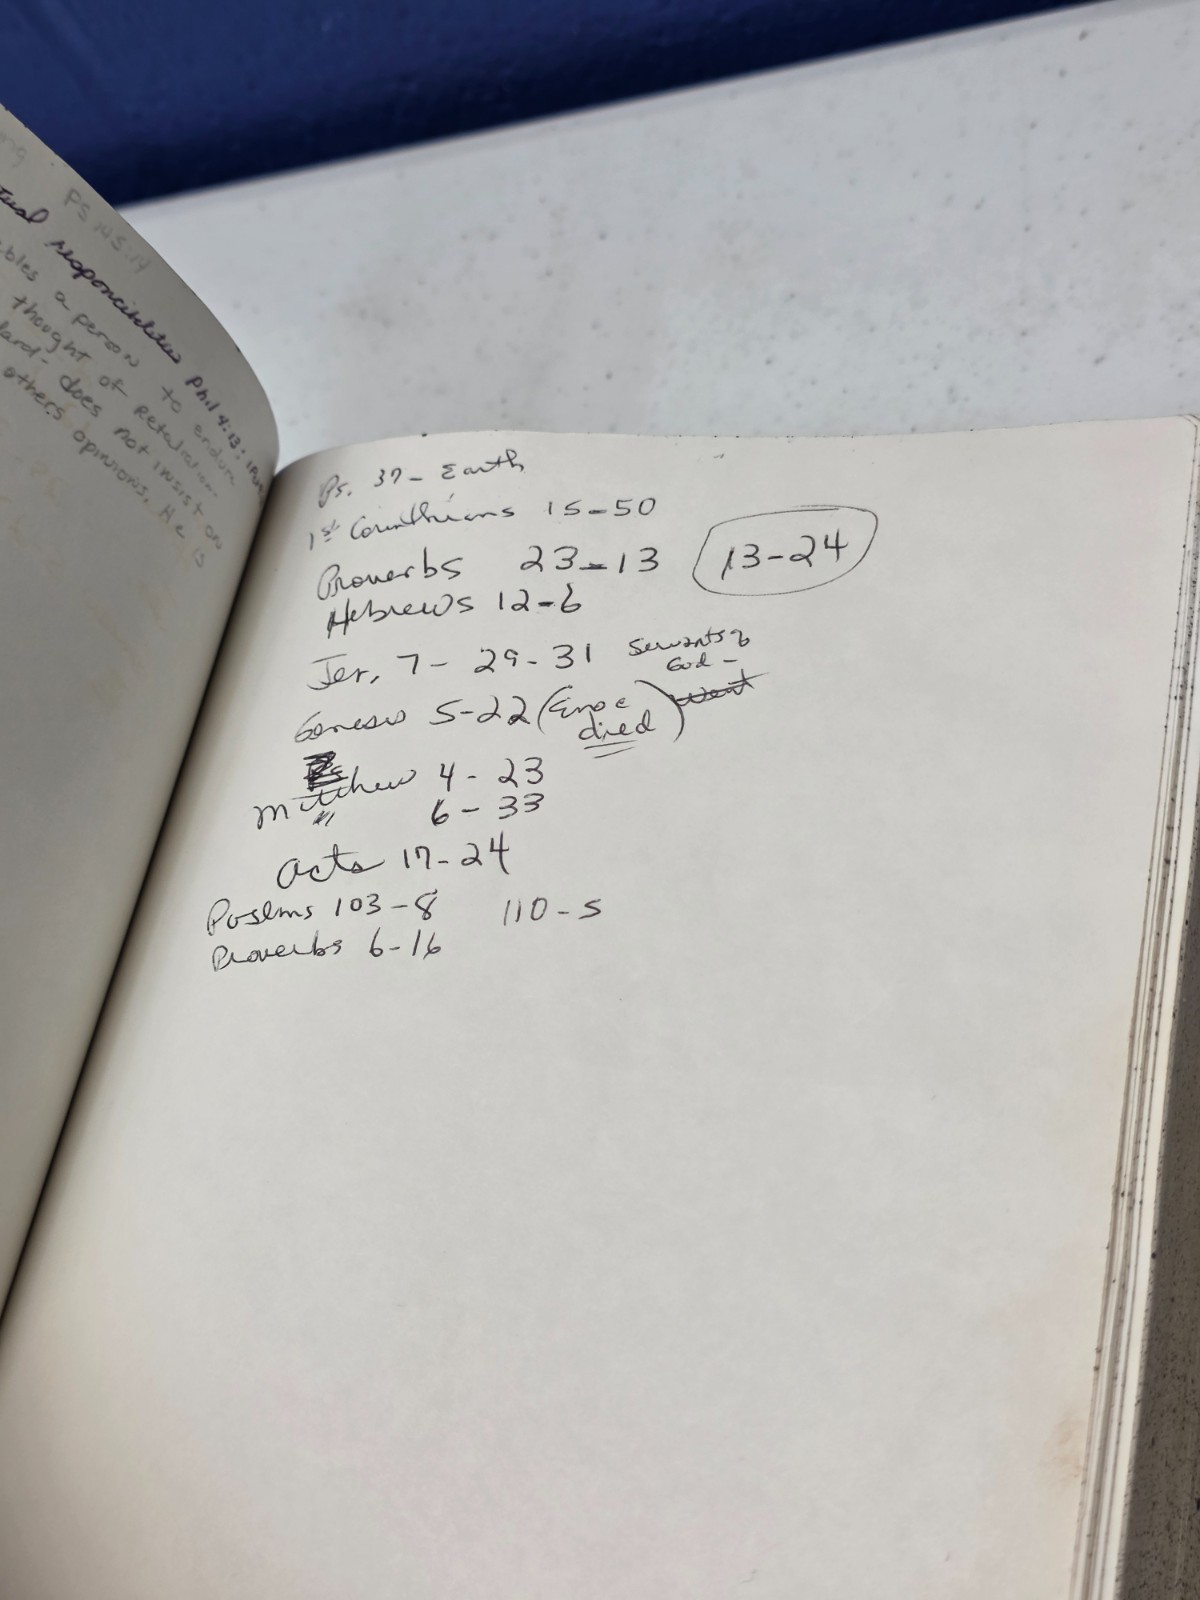 PS 145:14
responsibilities Phil 4:13:
a person to endure
thought of Retaliation
does not insist on
others opinions, He is
Ps. 37- Earth
1st Corinthians 15-50
Proverbs 23-13 13-24
Hebrews 12-6
Jer, 7- 29-31 Servants of
God -
Genesis 5-22 (Enoc
died) went
Matthew 4-23
" 6-33
Acts 17-24
Poslms 103-8 110-5
Proverbs 6-16